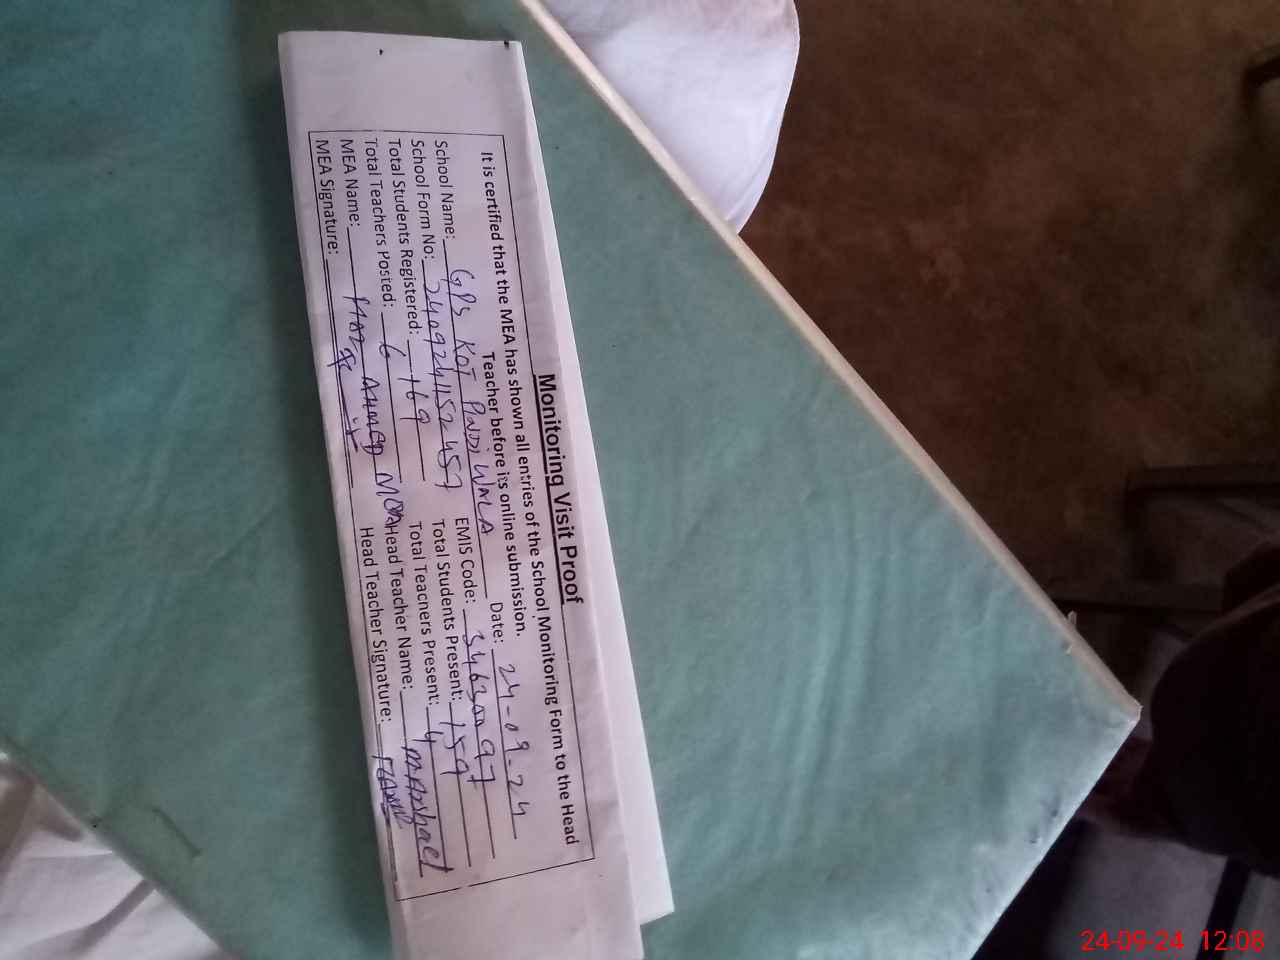 Monitoring Visit Proof
It is certified that the MEA has shown all entries of the School Monitoring Form to the Head
Teacher before its online submission.
Date: 24-09-24
School Name: GPS KOT PINDI WALA EMIS Code:
School Form No: Total Students Present: 159
Total Students Registered: 169 Total Teachers Present: 4
Total Teachers Posted: 6 Head Teacher Name:
MEA Name: AHMED Head Teacher Signature:
MEA Signature:
24-09-24 12:08